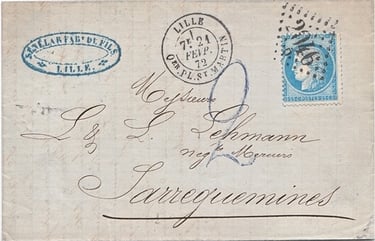 SÉNÉLAR FABT DE FILS
LILLE
LILLE
1
7E 21
FÉVR.
72
QER PL. ST MARTIN
2046
2
Messieurs
L & L. Lehmann
negts Merciers
Sarreguemines